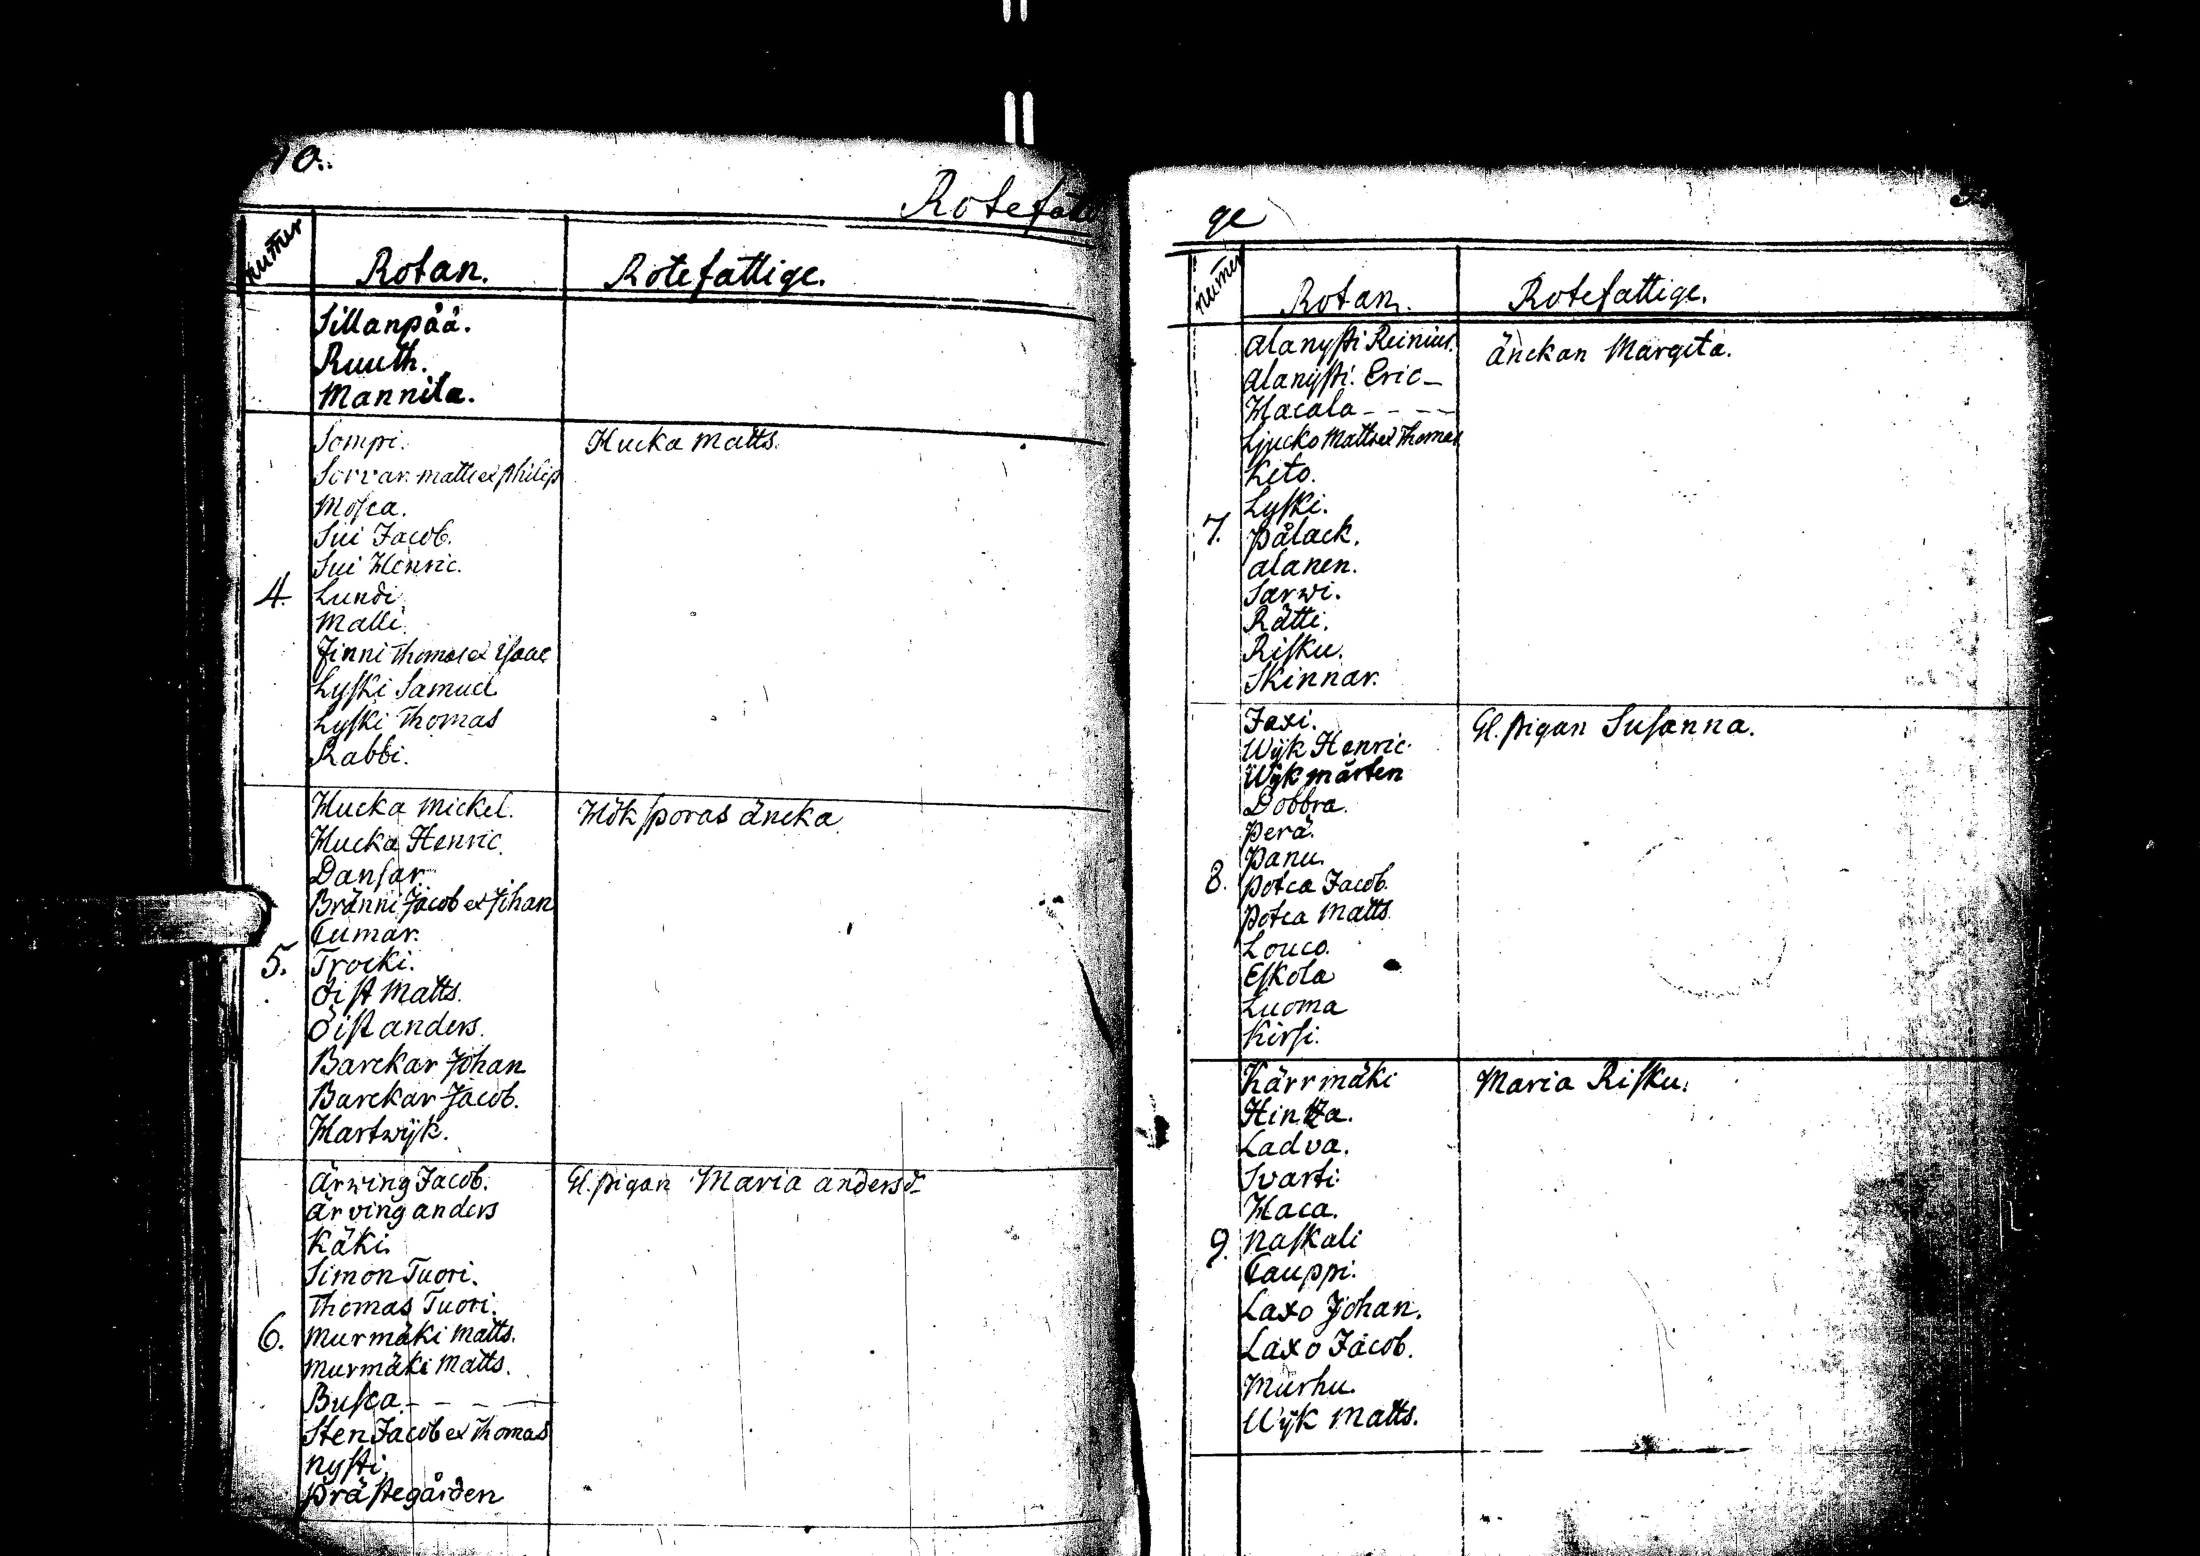 10.
Rotefatti
numer
Rotan.
Rotefattige.
Sillanpää.
Ruuth.
Mannila.
4.
Sompi.
Hucka Matts.
Sorvar. Matts et Philip
Mosca.
Sui Jacob.
Sui Henric.
Lundi
Malli.
Finni Thomas et Isaac
Lyski Samuel
Lyski Thomas
Rabbi.
5.
Hucka Mickel.
Hök sporas äncka
Hucka Henric.
Dansar
Bränni Jacob et Johan
Cumar.
Trocki.
Öist Matts.
Öist Anders.
Barckar Johan
Barckar Jacob.
Hartwijk.
6.
Ärwing Jacob.
Gl. pigan Maria Andersd-
Ärving Anders
Käki.
Simon Tuori.
Thomas Tuori.
Murmäki Matts.
Murmäki Matts.
Busca. - - - -
Sten Jacob et Thomas
Nysti
Prästegården
ge
numer
Rotan.
Rotefattige.
7.
Alanysti Reinius.
änckan Margeta.
Alanysti. Eric -
Hacala - - - -
Ljucko Matts et Thomas
Keto.
Lyski.
Pålack.
Alanen.
Sarwi.
Rätti.
Risku.
Skinnar.
8.
Jaxi.
Gl. pigan Susanna.
Wijk Henric.
Wijk Mårten
Dobbra.
Perä.
Panu.
Potca Jacob.
Potca Matts.
Louco.
Eskola
Luoma
Kirsi.
9.
Kärrmäki
Maria Risku.
Ladva.
Svarti.
Haca.
Naskali
Cauppi.
Laxo Johan.
Laxo Jacob.
Murhu.
Wijk Matts.